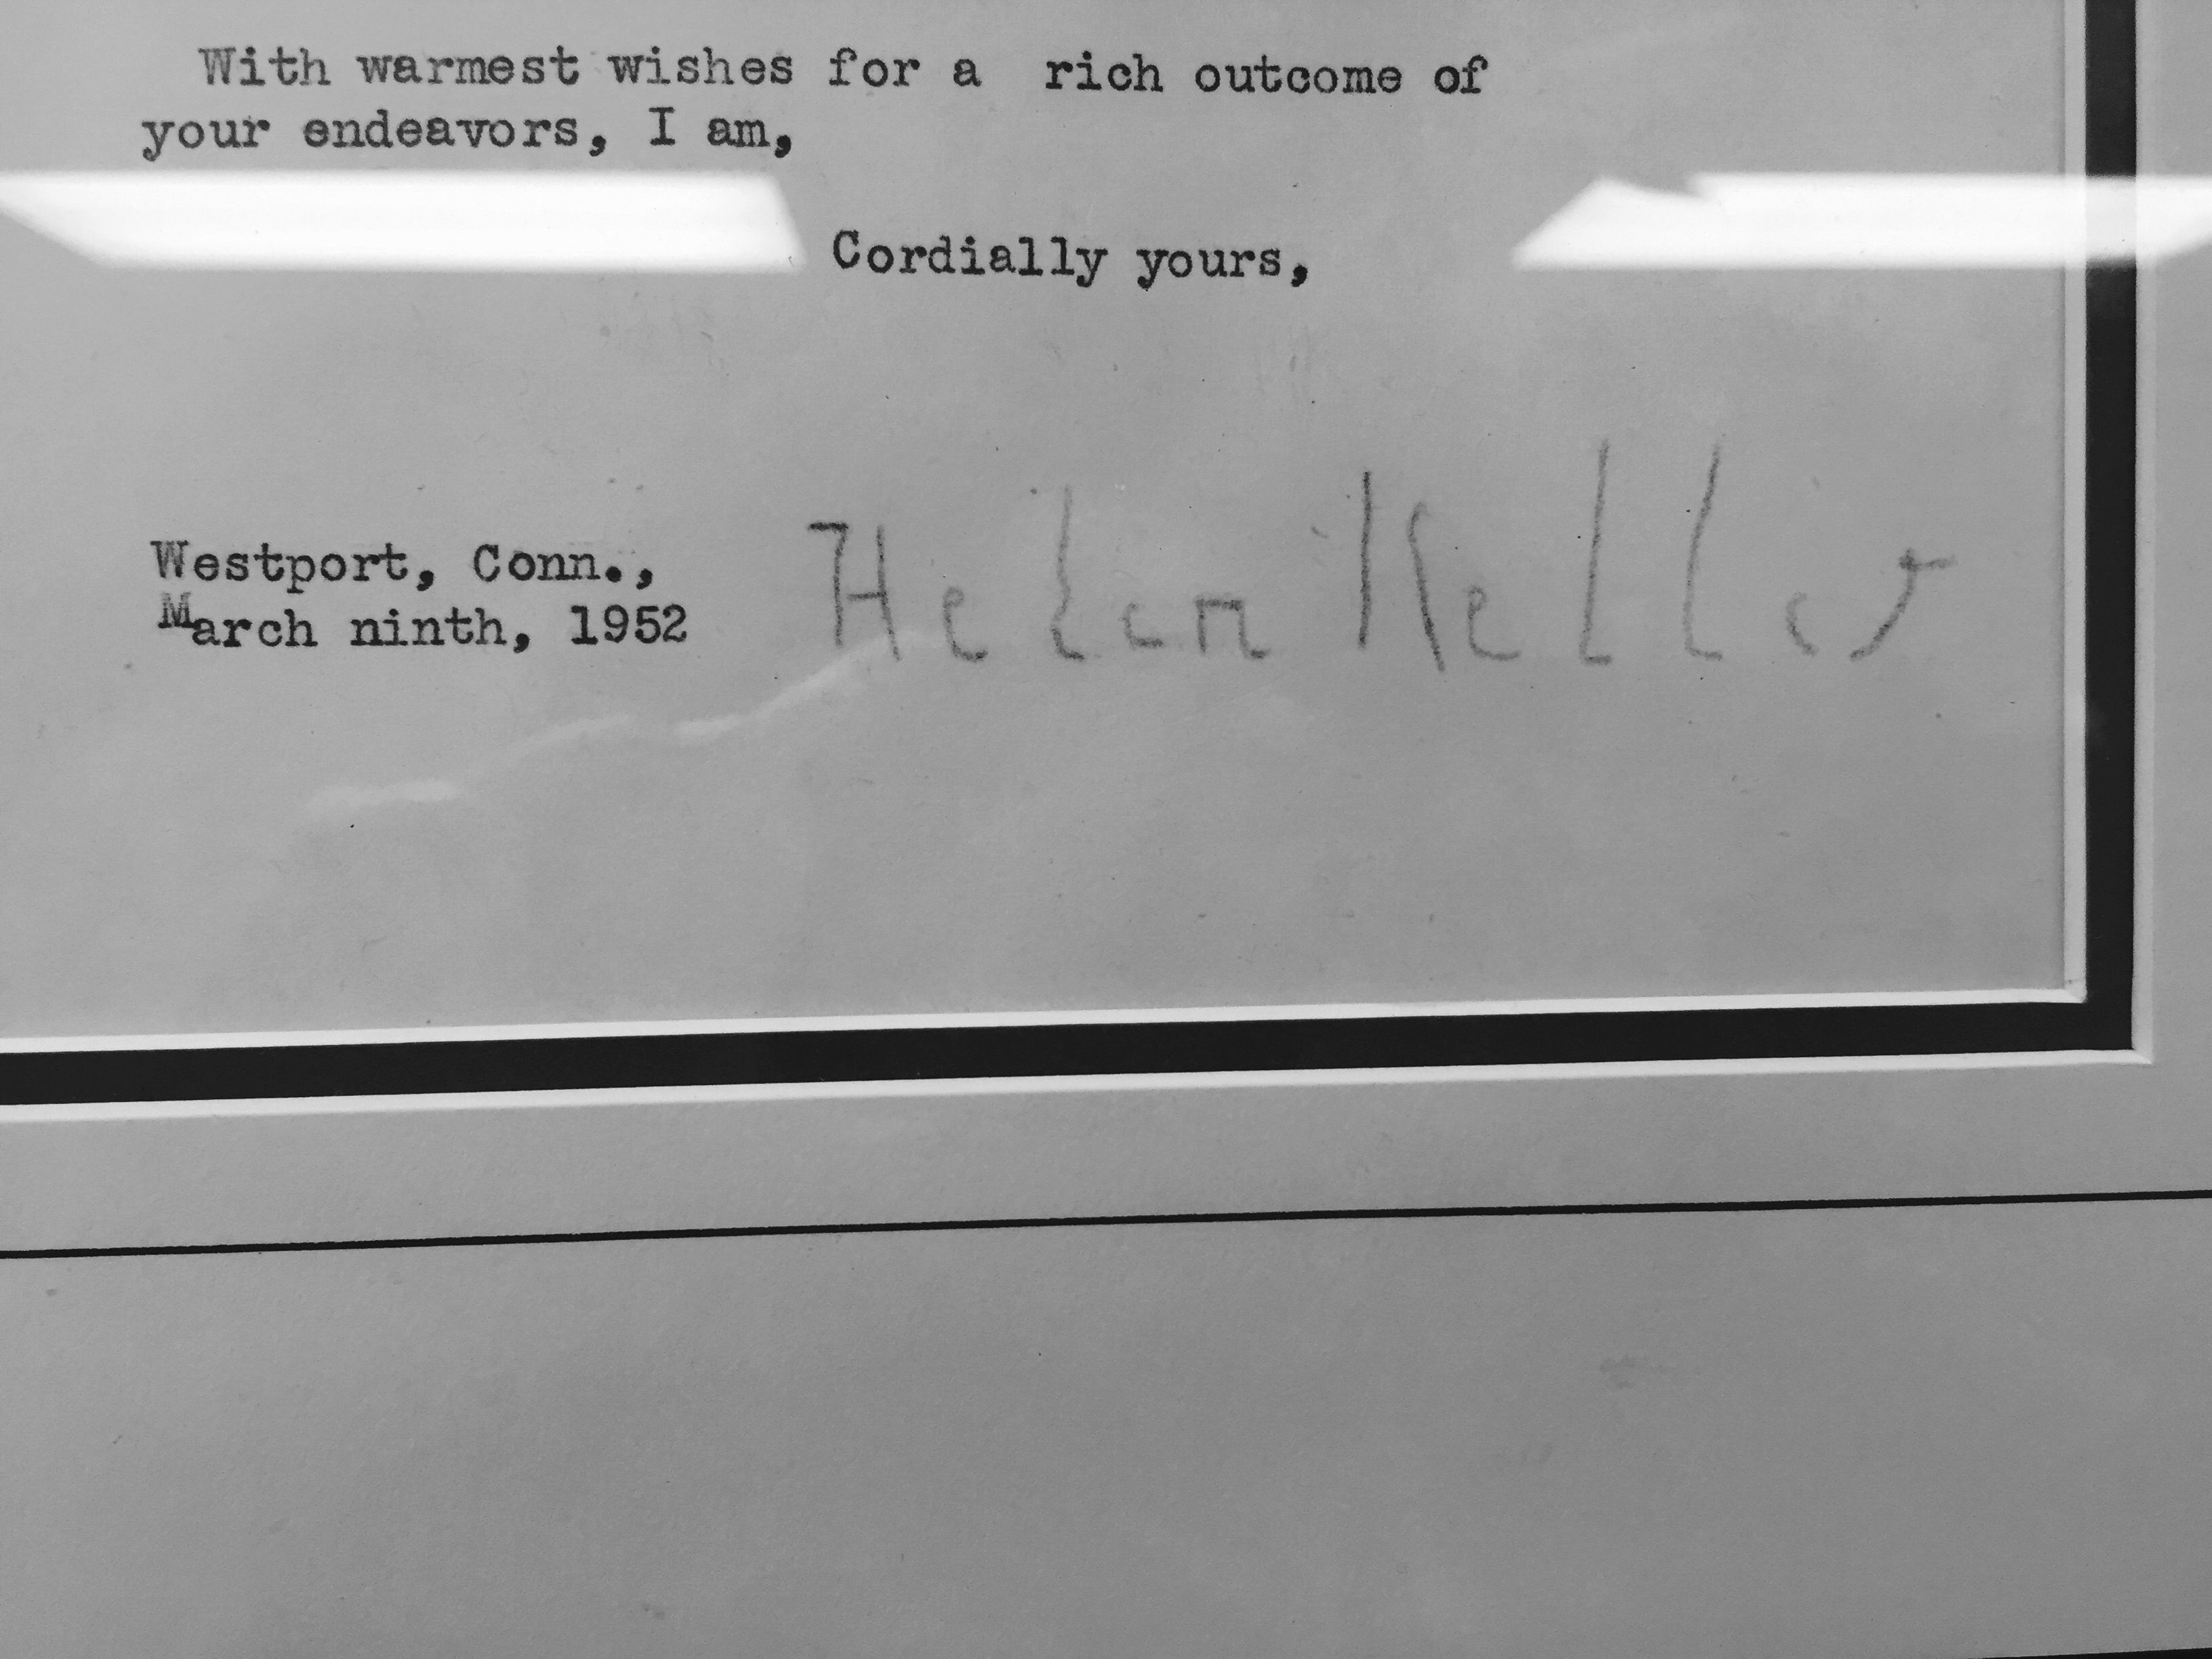 With warmest wishes for a rich outcome of
your endeavors, I am,
Cordially yours,
Westport, Conn.,
March ninth, 1952
Helen Keller